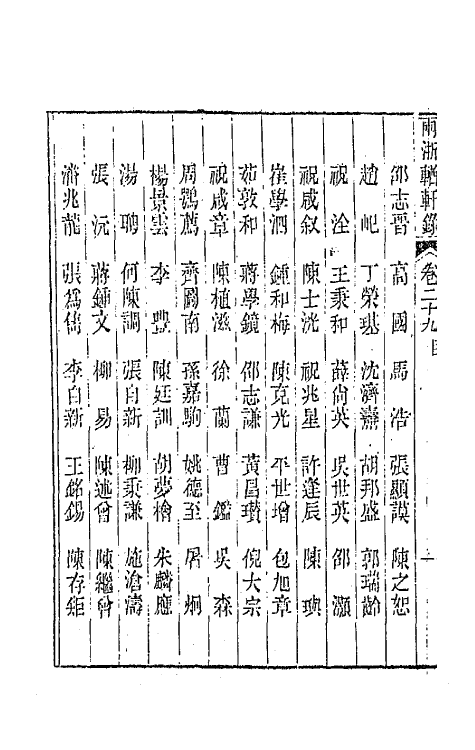 兩浙輶軒錄 卷二十九 目 一
邵志晋 高國 馬浩 張顯謨 陳之恕
趙屺 丁榮 沈濟燾 胡邦盛 郭瑞齡
祝洤 王秉和 薛尙英 吳世英 邵灝
祝咸敘 陳士洸 祝兆星 許逢辰 陳璵
崔學泗 鍾和梅 陳克光 平世增 包旭章
茹敦和 蔣學鏡 邵志謙 黃昌瓚 倪大宗
祝咸章 陳植滋 徐蘭 曹鑑 吳森
周鶚薦 齊圖南 孫嘉駒 姚德至 屠烱
楊景雲 李豐 陳廷訓 胡夢檜 朱麟應
湯聘 何陳調 張自新 柳秉謙 施滄濤
張沅 蔣鍾文 柳易 陳述曾 陳繼曾
潘兆龍 張爲儁 李白新 王銘錫 陳存矩